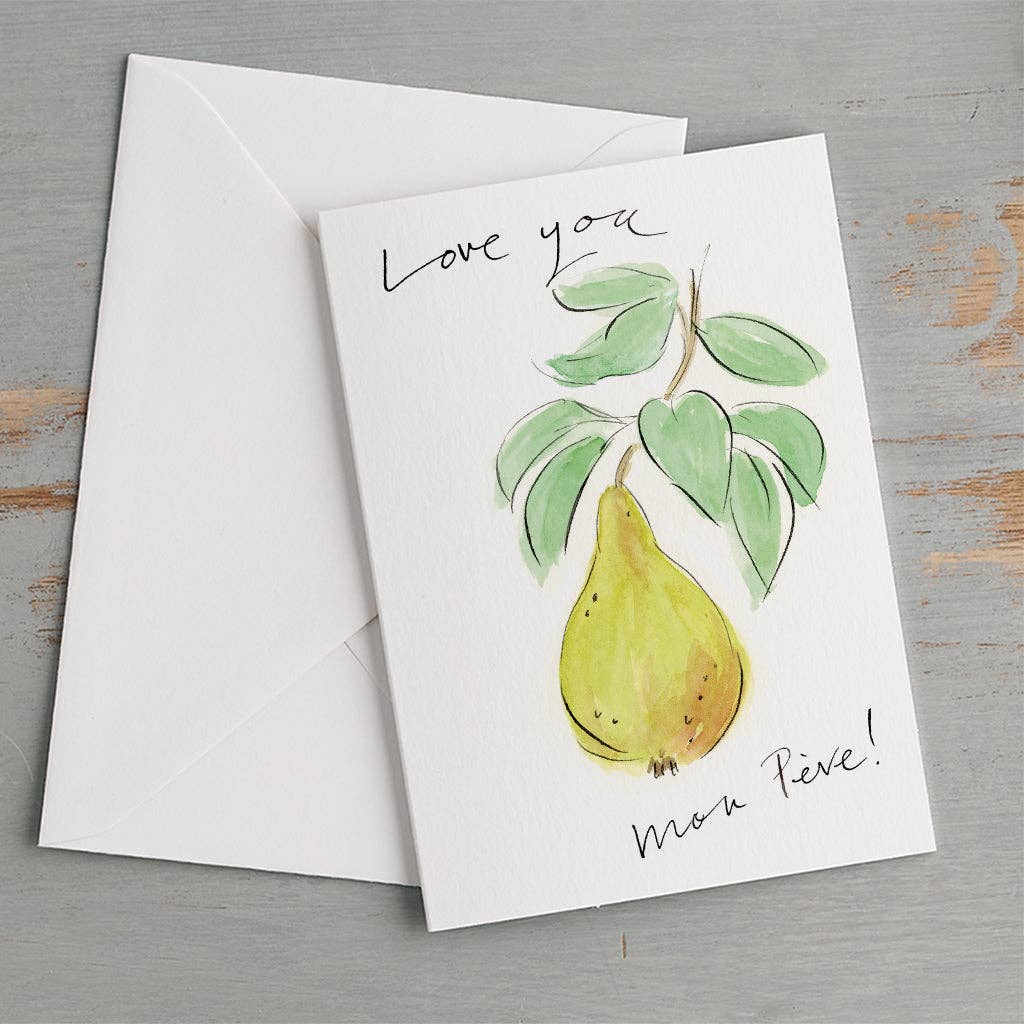 Love you
mon Père!